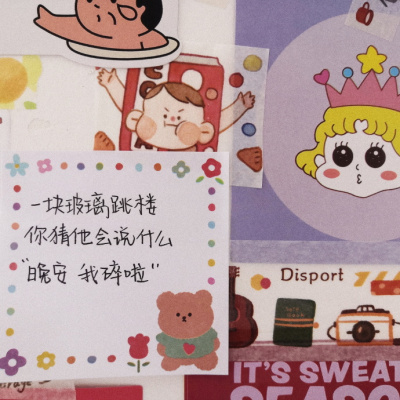 一块玻璃跳楼
你猜他会说什么
"晚安 我碎啦"
Disport
IT'S SWEAT